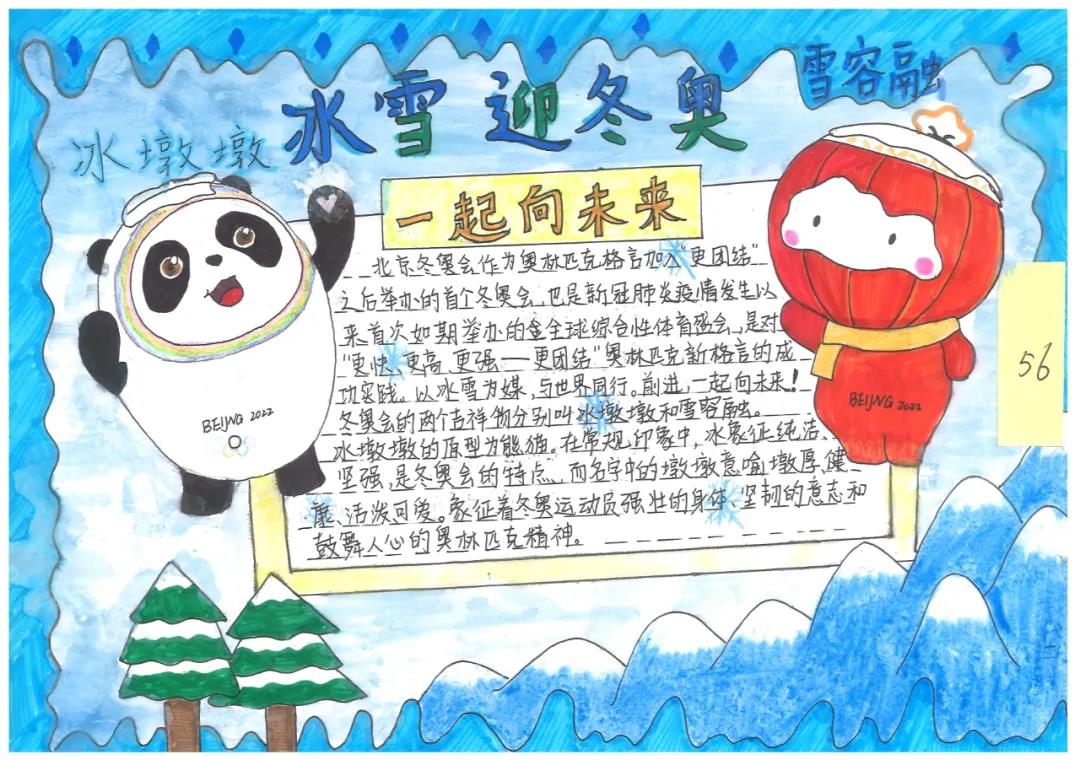 冰雪迎冬奥
雪容融
冰墩墩
一起向未来
北京冬奥会作为奥林匹克格言加入“更团结”
之后举办的首个冬奥会，也是新冠肺炎疫情发生以
来首次如期举办的全全球综合性体育盛会，是对
“更快、更高、更强——更团结”奥林匹克新格言的成
功实践。以冰雪为媒，与世界同行。前进，一起向未来！
冬奥会的两个吉祥物分别叫冰墩墩和雪容融。
冰墩墩的原型为熊猫。在常规印象中，冰象征纯洁、
坚强，是冬奥会的特点，而名字中的墩墩意喻墩厚、健
康、活泼可爱。象征着冬奥运动员强壮的身体、坚韧的意志和
鼓舞人心的奥林匹克精神。
BEIJNG 2022
BEIJNG 2022
56